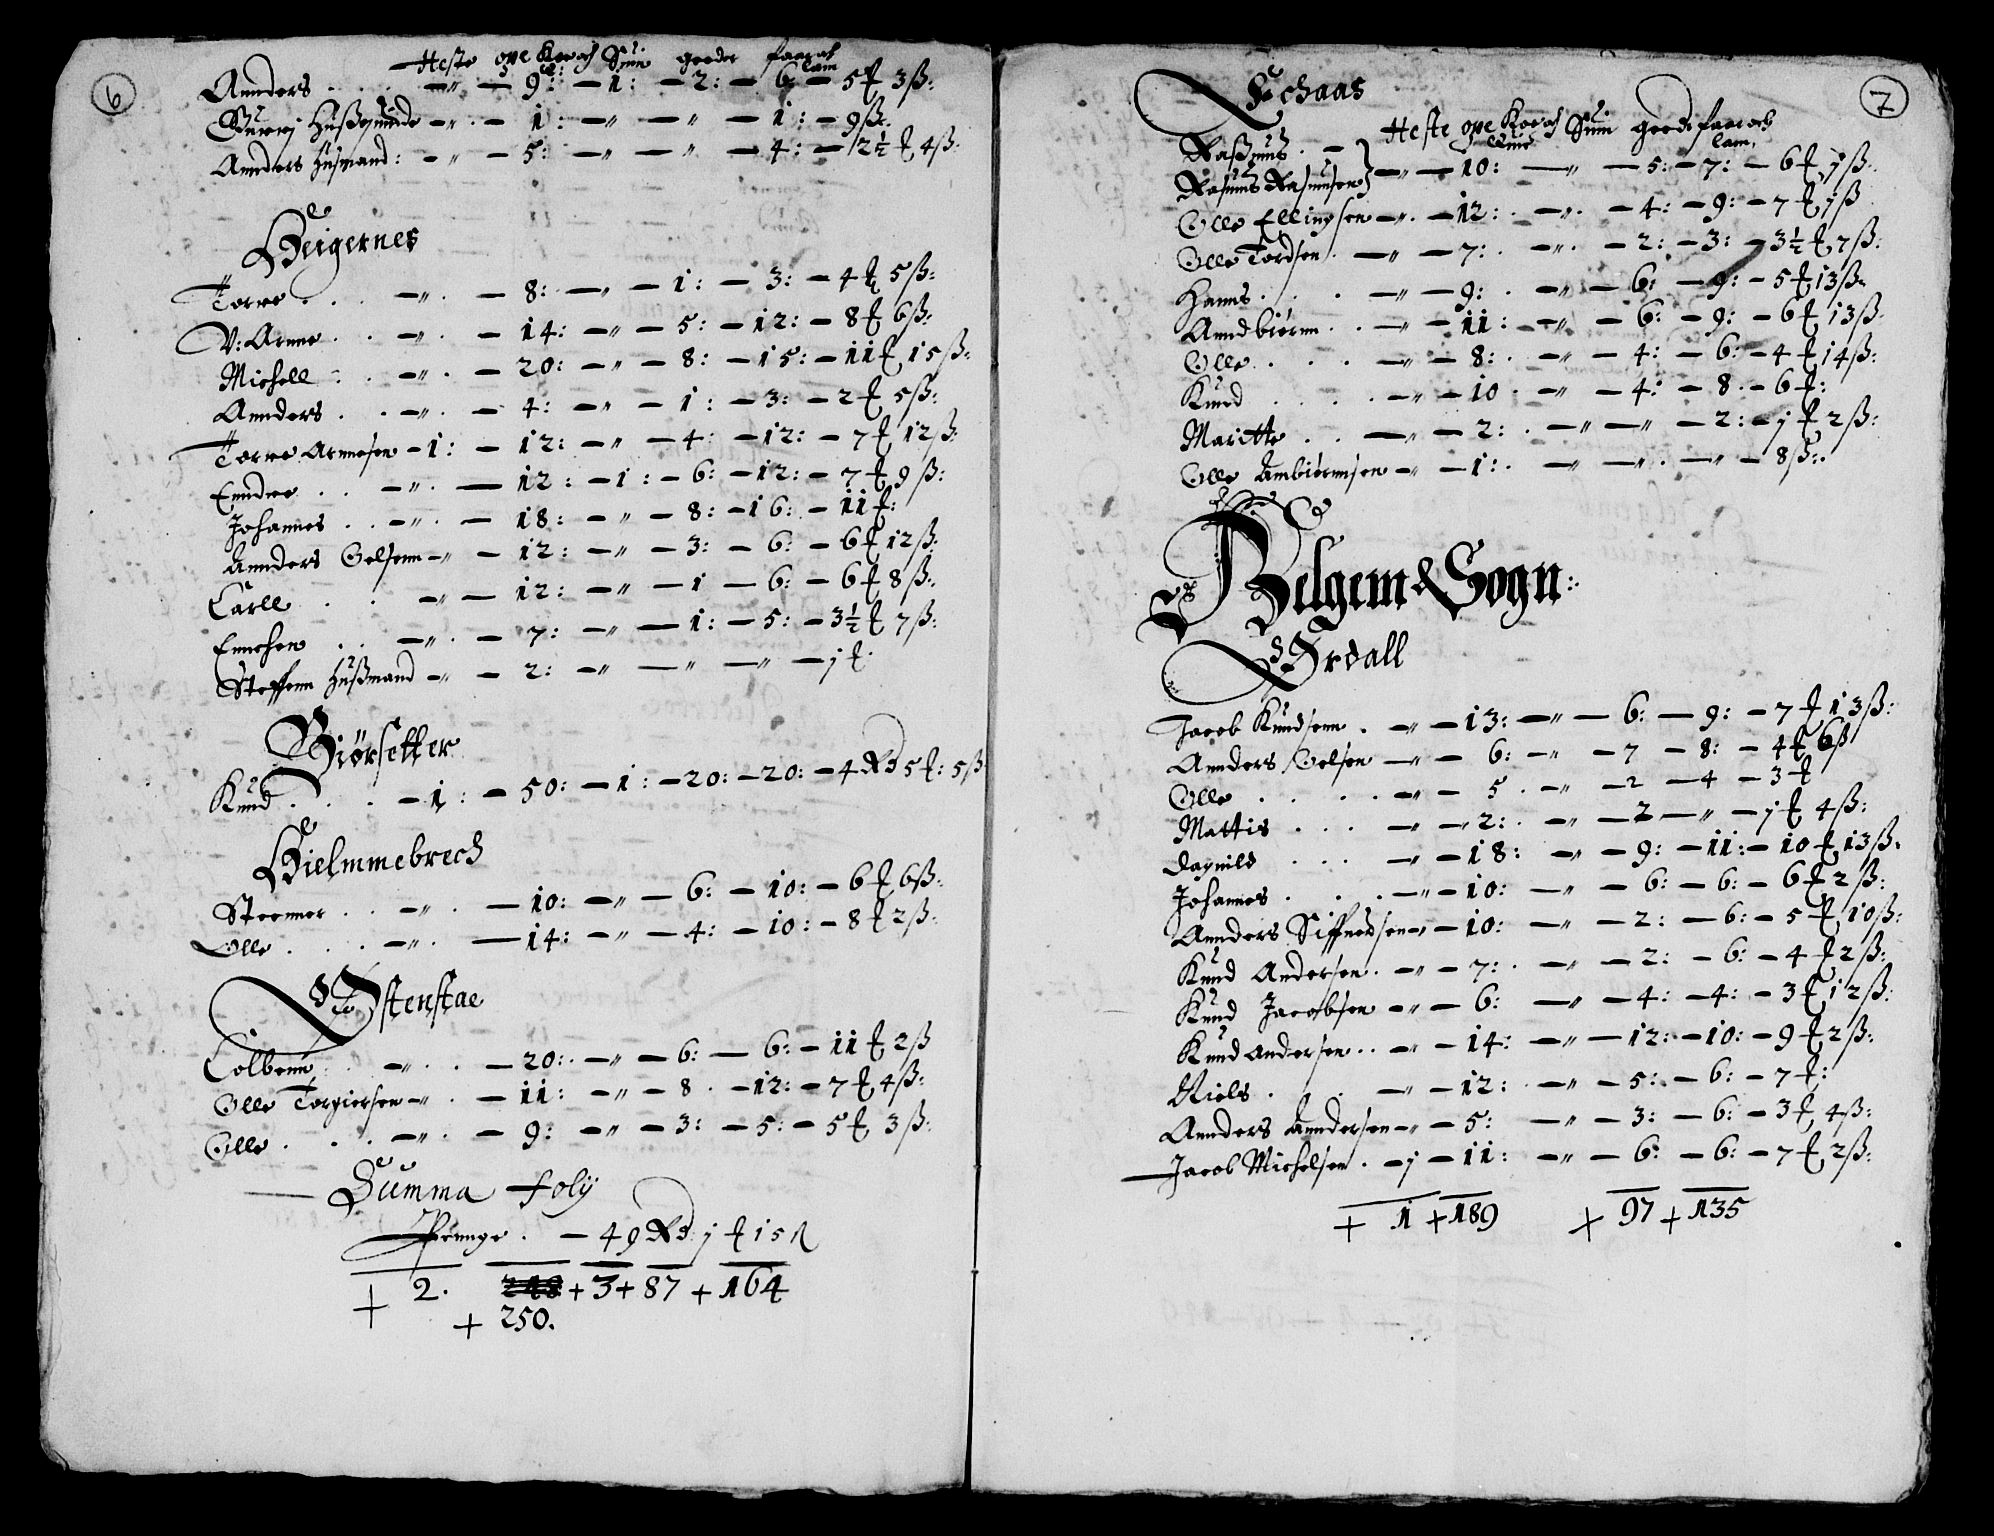 6
Heste oxe Kør och Suin geeder faar och lam
Annders . . . — " — 9: — 1: — 2: — 6: — 5 ƭ 3 ß:
Gurrj Hußquinde — " — 1: — " — " — 1: — 9 ß.
Annders Hußmand: — " — 5: — " — " — 4: — 2½ ƭ 4 ß:
Heigernes
Torre . . . — " . — 8: — " — 1: — 3: — 4 ƭ 5 ß:
V: Arnne . . — " . — 14: — " — 5: — 12: — 8 ƭ 6 ß:
Michell . . — " . — 20: — " — 8: — 15: — 11 ƭ 15 ß:
Annders . . — " . — 4: — " — 1: — 3: — 2 ƭ 5 ß:
Torre Arnnesen — 1: — 12: — " — 4: — 12: — 7 ƭ 12 ß:
Enndre . . — " . — 12: — 1: — 6: — 12: — 7 ƭ 9 ß:
Johannes . . — " . — 18: — " — 8: — 16: — 11 ƭ:
Annders Oelsenn — " — 12: — " — 3: — 6: — 6 ƭ 12 ß:
Carll . . — " — 12: — " — 1 — 6: — 6 ƭ 8 ß:
Ennchen . . — " . — 7: — " — 1: — 5: — 3½ ƭ 7 ß:
Steffenn Hußmand — " — 2: — " — " — " — j ƭ:
Biørsetter
Knud . . . — 1: — 50: — 1: — 20: — 20: — 4 Rd 5 ƭ: 5 ß
Hielmmebrech
Steenner . . — " . — 10: — " — 6: — 10: — 6 ƭ 6 ß:
Olle . . . — " . — 14: — " — 4: — 10: — 8 ƭ 2 ß:
Østenstae
Colbenn . . — " . . — 20: — " — 6: — 6: — 11 ƭ 2 ß
Olle Torgiersen — " . — 11: — " — 8 . — 12: — 7 ƭ 4 ß:
Olle . . . — " . — 9: — " — 3: — 5: — 5 ƭ 3 ß:
Summa folÿ
Pennge . — 49 Rd j ƭ 15 ß
+ 2. 248 + 3 + 87 + 164
+ 250.
7
Schaas
Heste oxe Kør och Suin geede faar och lam.
Raßmus . —
Rasmus Rasmusen } — " — 10: — " — 5: — 7: — 6 ƭ j ß:
Olle Ellingsen — " . — 12: . — " . — 4: — 9: — 7 ƭ j ß
Olle Tordsen . — " — 7: . — " . — 2: — 3: — 3½ ƭ 7 ß:
Hanns . . . — " — 9: . — " — 6: — 9: — 5 ƭ 13 ß:
Anndbiørnn . . — " — 11: — " — 6: — 9: — 6 ƭ 13 ß:
Olle . . . — " — 8: . — " — 4: — 6: — 4 ƭ 14 ß:
Knud . . . — " — 10 . — " — 4: — 8 . — 6 ƭ:
Maritte . . — " — 2: . — " — " — 2: — j ƭ 2 ß:
Olle Ambiørnnsen — " — 1: . — " — " . — " — 8 ß:
Belgem Sogn:
Ørdall
Jacob Knudsenn . — " — 13: — " — 6: — 9: — 7 ƭ 13 ß:
Annders Oelsen — " — 6: — " — 7 — 8: — 4 ƭ 6 ß
Olle . . . . — " — 5 . — " — 2 — 4 — 3 ƭ
Mattis . . . — " — 2: . — " — 2 — " — j ƭ 4 ß:
Dagnild . . . — " — 18: — " — 9: — 11: — 10 ƭ 13 ß:
Johannes . . . — " — 10: — " — 6: — 6: — 6 ƭ 2 ß:
Annders Siffuedsen — " — 10: — " — 2: — 6: — 5 ƭ 10 ß:
Knud Andersen . — " — 7: . — " — 2: — 6: — 4 ƭ 2 ß:
Knud Jacobsen — " — 6: — " — 4: — 4: — 3 ƭ 12 ß:
Knud Andersen . . — " — 14: — " — 12: — 10: — 9 ƭ 2 ß:
Niels . . — " — 12: . — " — 5: — 6: — 7 ƭ:
Annders Anndersen — " — 5: — " — 3: — 6: — 3 ƭ 4 ß:
Jacob Michelsen . — j — 11: — " — 6: — 6: — 7 ƭ 2 ß:
+ 1 + 189 + 97 + 135